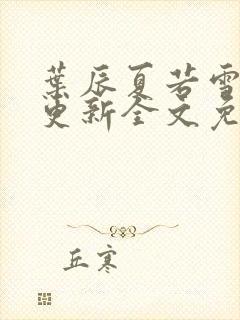 葉辰夏若雪
更新全文免
丘寒